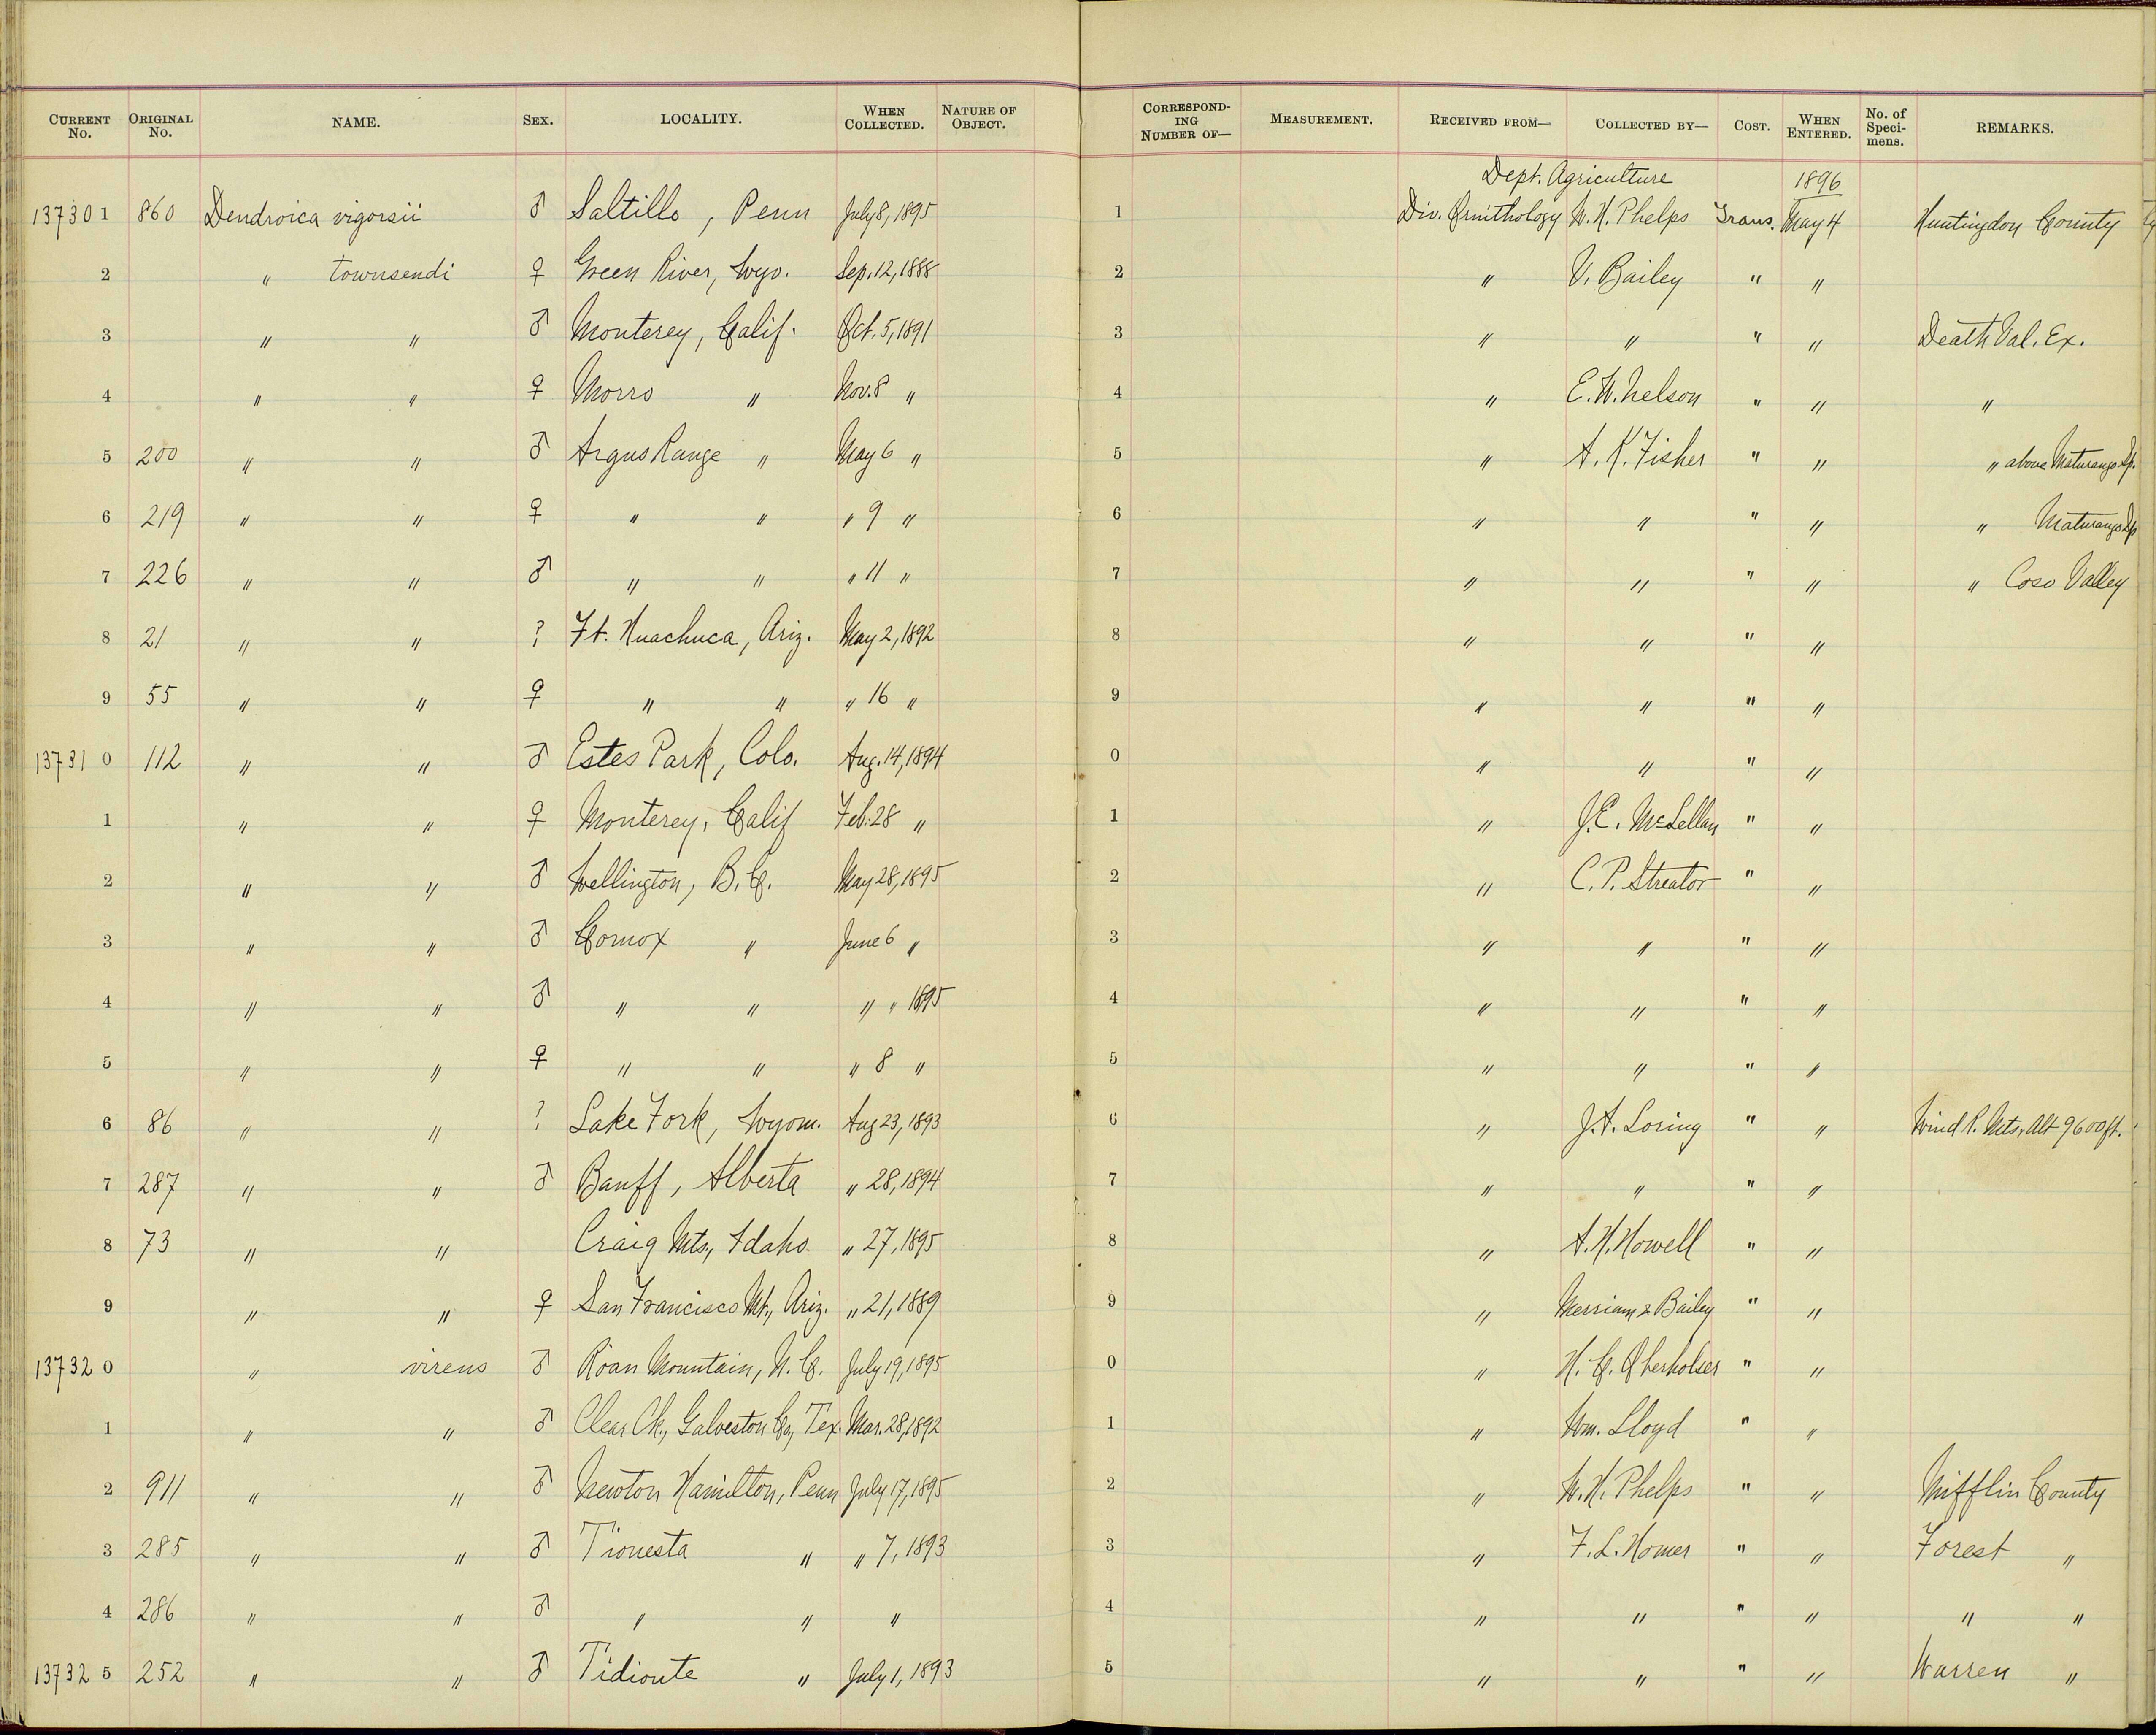 CURRENT No. ORIGINAL No. NAME. SEX. LOCALITY. WHEN COLLECTED. NATURE OF OBJECT. CORRESPONDING NUMBER OF— MEASUREMENT. RECEIVED FROM— COLLECTED BY— COST. WHEN ENTERED. No. of Specimens. REMARKS.
Dept. Agriculture 1896
137301 860 Dendroica vigorsii ♂ Saltillo, Penn July 8, 1895 1 Div. Ornithology W. H. Phelps Trans. May 4 Huntingdon County
2 " townsendi ♀ Green River, Wyo. Sep. 12, 1888 2 " V. Bailey " "
3 " " ♂ Monterey, Calif. Oct. 5, 1891 3 " " " " Death Val. Ex.
4 " " ♀ Morro " Nov. 8 " 4 " E. W. Nelson " " "
5 200 " " ♂ Argus Range " May 6 " 5 " A. K. Fisher " " " above Maturango Sp.
6 219 " " ♀ " " " 9 " 6 " " " " " Maturango Sp
7 226 " " ♂ " " " 11 " 7 " " " " " Coso Valley
8 21 " " ? Ft. Huachuca, Ariz. May 2, 1892 8 " " " "
9 55 " " ♀ " " " 16 " 9 " " " "
137310 112 " " ♂ Estes Park, Colo. Aug. 14, 1894 0 " " " "
1 " " ♀ Monterey, Calif Feb. 28 " 1 " J. E. McLellan " "
2 " " ♂ Wellington, B. C. May 28, 1895 2 " C. P. Streator " "
3 " " ♂ Comox " June 6 " 3 " " " "
4 " " ♂ " " " " 1895 4 " " " "
5 " " ♀ " " " 8 " 5 " " " "
6 86 " " ? Lake Fork, Wyom. Aug 23, 1893 6 " J. A. Loring " " Wind R. Mts, Alt 9600 ft.
7 287 " " ♂ Banff, Alberta " 28, 1894 7 " " " "
8 73 " " Craig Mts, Idaho " 27, 1895 8 " A. H. Howell " "
9 " " ♀ San Francisco Mt., Ariz. " 21, 1889 9 " Merriam & Bailey " "
137320 " virens ♂ Roan Mountain, N. C. July 19, 1895 0 " H. C. Oberholser " "
1 " " ♂ Clear Ck., Galveston Co, Tex. Mar. 28, 1892 1 " Wm. Lloyd " "
2 911 " " ♂ Newton Hamilton, Penn July 17, 1895 2 " W. H. Phelps " " Mifflin County
3 285 " " ♂ Tionesta " " 7, 1893 3 " F. L. Homer " " Forest "
4 286 " " ♂ " " " 4 " " " " " "
137325 252 " " ♂ Tidioute " July 1, 1893 5 " " " " Warren "